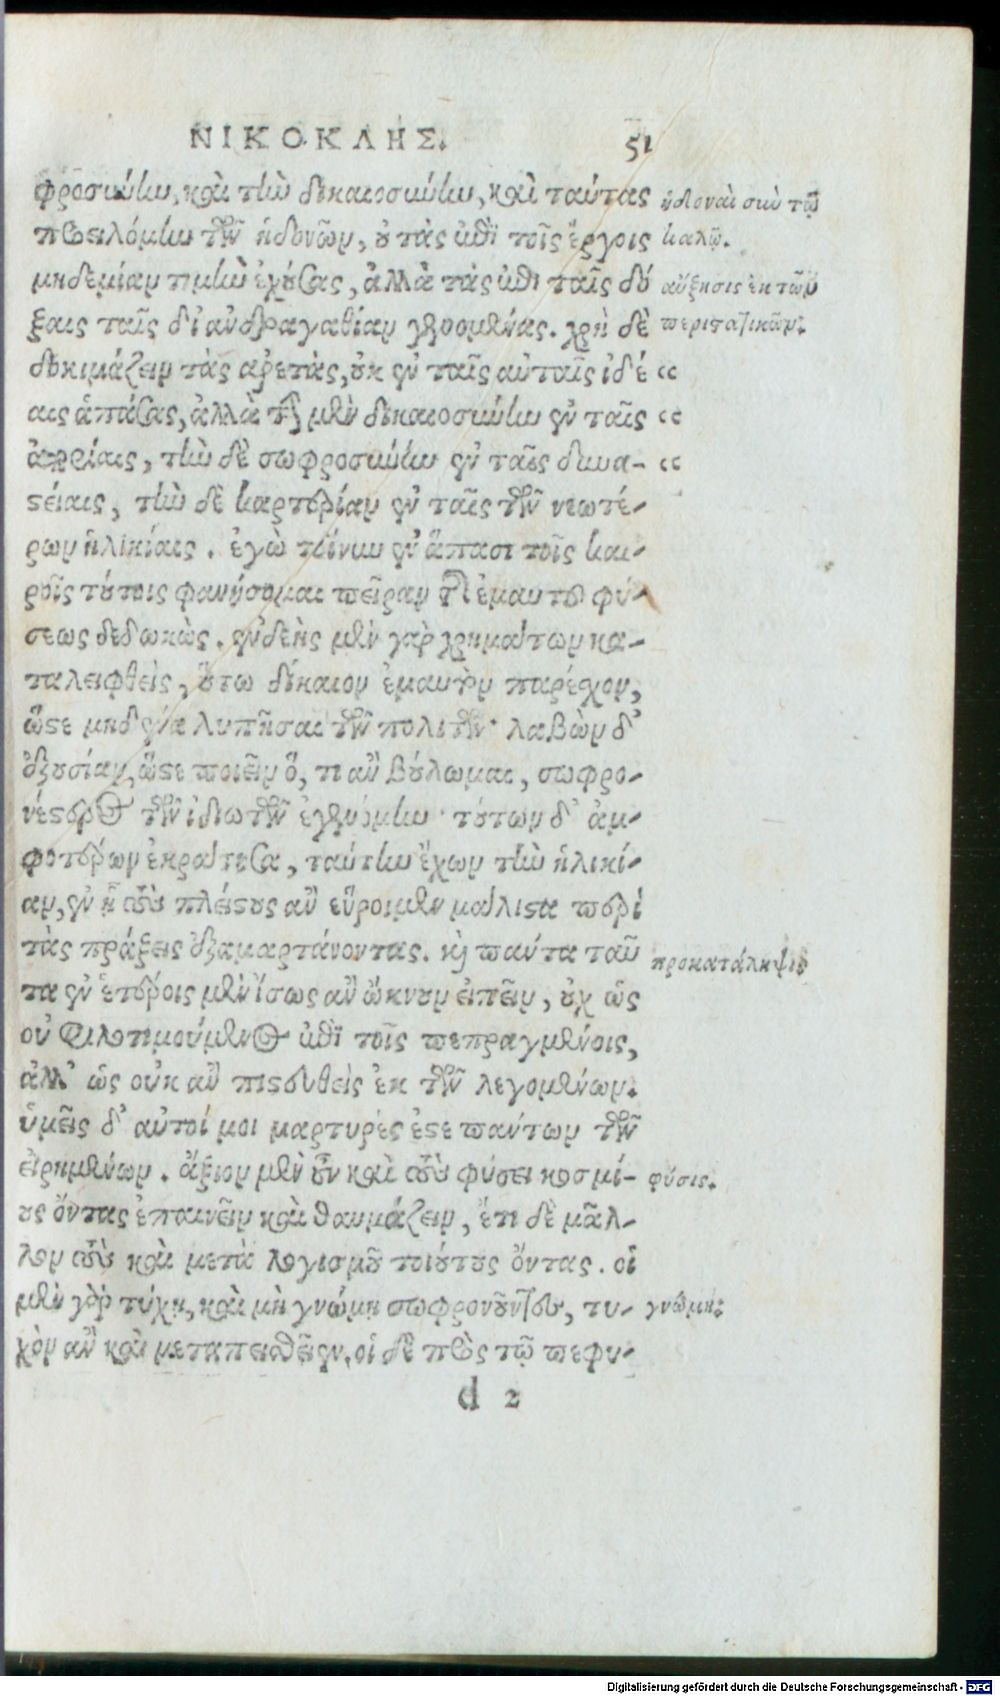 ΝΙΚΟΚΛΗΣ. 51
φροσύνην, καὶ τὴν δικαιοσύνην, καὶ ταύτας
προειλόμην τῶν ἡδονῶν, οὐ τὰς ἐπὶ τοῖς ἔργοις
μηδεμίαν τιμὴν ἐχούσας, ἀλλὰ τὰς ἐπὶ ταῖς δό
ξαις ταῖς δι' ἀνδραγαθίαν γενομένας. χρὴ δὲ
δοκιμάζειν τὰς ἀρετὰς, οὐκ ἐν ταῖς αὐταῖς ἰδέ
αις ἁπάσας, ἀλλὰ τὴν μὲν δικαιοσύνην ἐν ταῖς
ἀπορίαις, τὴν δὲ σωφροσύνην ἐν ταῖς δυνα-
στείαις, τὴν δὲ καρτερίαν ἐν ταῖς τῶν νεωτέ-
ρων ἡλικίαις. ἐγὼ τοίνυν ἐν ἅπασι τοῖς και-
ροῖς τούτοις φανήσομαι πεῖραν τῆς ἐμαυτοῦ φύ-
σεως δεδωκὼς. ἐνδεὴς μὲν γὰρ χρημάτων κα-
ταλειφθεὶς, οὕτω δίκαιον ἐμαυτὸν παρέχον,
ὥστε μηδένα λυπῆσαι τῶν πολιτῶν· λαβὼν δ'
ἐξουσίαν, ὥστε ποιεῖν ὅ, τι ἂν βούλωμαι, σωφρο-
νέστερος τῶν ἰδιωτῶν ἐγενόμην· τούτων δ' ἀμ-
φοτέρων ἐκράτησα, ταύτην ἔχων τὴν ἡλικί-
αν, ἐν ᾗ τοὺς πλείστους ἂν εὕροιμεν μάλιστα περὶ
τὰς πράξεις ἐξαμαρτάνοντας. καὶ πάντα ταῦ
τα ἐν ἑτέροις μὲν ἴσως ἂν ὤκνουν εἰπεῖν, οὐχ ὡς
οὐ φιλοτιμούμενος ἐπὶ τοῖς πεπραγμένοις,
ἀλλ' ὡς οὐκ ἂν πιστευθεὶς ἐκ τῶν λεγομένων.
ὑμεῖς δ' αὐτοί μοι μάρτυρές ἐστε πάντων τῶν
εἰρημένων. ἄξιον μὲν οὖν καὶ τοὺς φύσει κοσμί-
ους ὄντας ἐπαινεῖν καὶ θαυμάζειν, ἔτι δὲ μᾶλ-
λον τοὺς καὶ μετὰ λογισμοῦ τοιούτους ὄντας. οἱ
μὲν γὰρ τύχῃ, καὶ μὴ γνώμῃ σωφρονοῦντες, τυ-
χὸν ἂν καὶ μεταπεισθεῖεν, οἱ δὲ πρὸς τῷ πεφυ-
d 2
ἡδοναὶ σὺν τῷ
καλῷ.
αὔξησις ἐκ τῶν
περιστατικῶν.
‹‹
‹‹
‹‹
προκατάληψις
φύσις.
γνώμη.